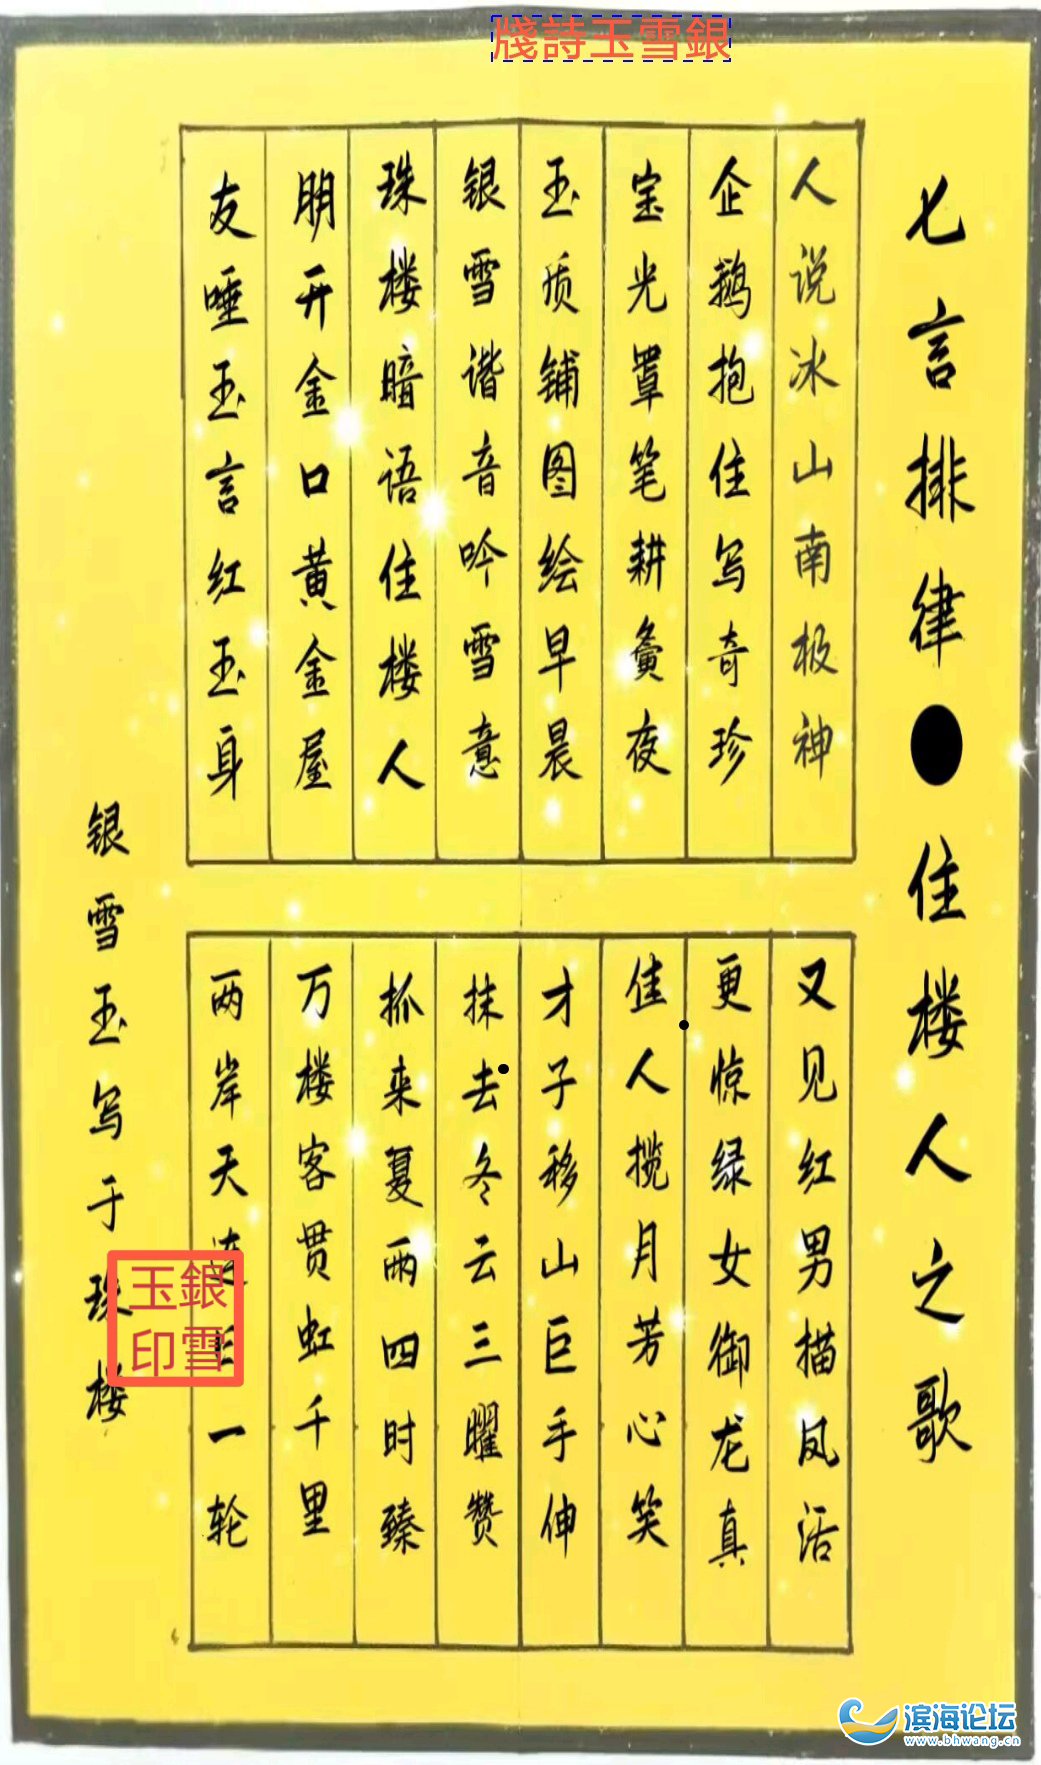 銀雪玉詩牋
七言排律●住楼人之歌
人说冰山南极神
企鹅抱住写奇珍
宝光罩笔耕夤夜
玉质铺图绘早晨
银雪谐音吟雪意
珠楼暗语住楼人
朋开金口黄金屋
友唾玉言红玉身
又见红男描凤活
更惊绿女御龙真
佳人揽月芳心笑
才子移山巨手伸
抹去冬云三曜赞
抓来夏雨四时臻
万楼客贯虹千里
两岸天一轮
银雪玉写于珠楼
銀雪
玉印
滨海论坛
www.bhwang.cn